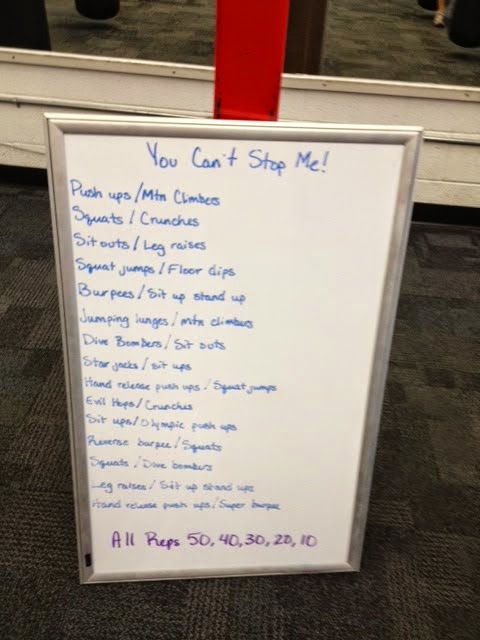 You Can't Stop Me!
Push ups/Mtn Climbers
Squats/Crunches
Sit outs/Leg raises
Squat jumps/Floor dips
Burpees/Sit up stand up
Jumping lunges/mtn climbers
Dive Bombers/Sit outs
Star jacks/sit ups
Hand release push ups/Squat jumps
Evil Hops/Crunches
Sit ups/Olympic push ups
Reverse burpee/Squats
Squats/Dive bombers
Leg raises/Sit up stand ups
Hand release push ups/Super burpee
All Reps 50, 40, 30, 20, 10